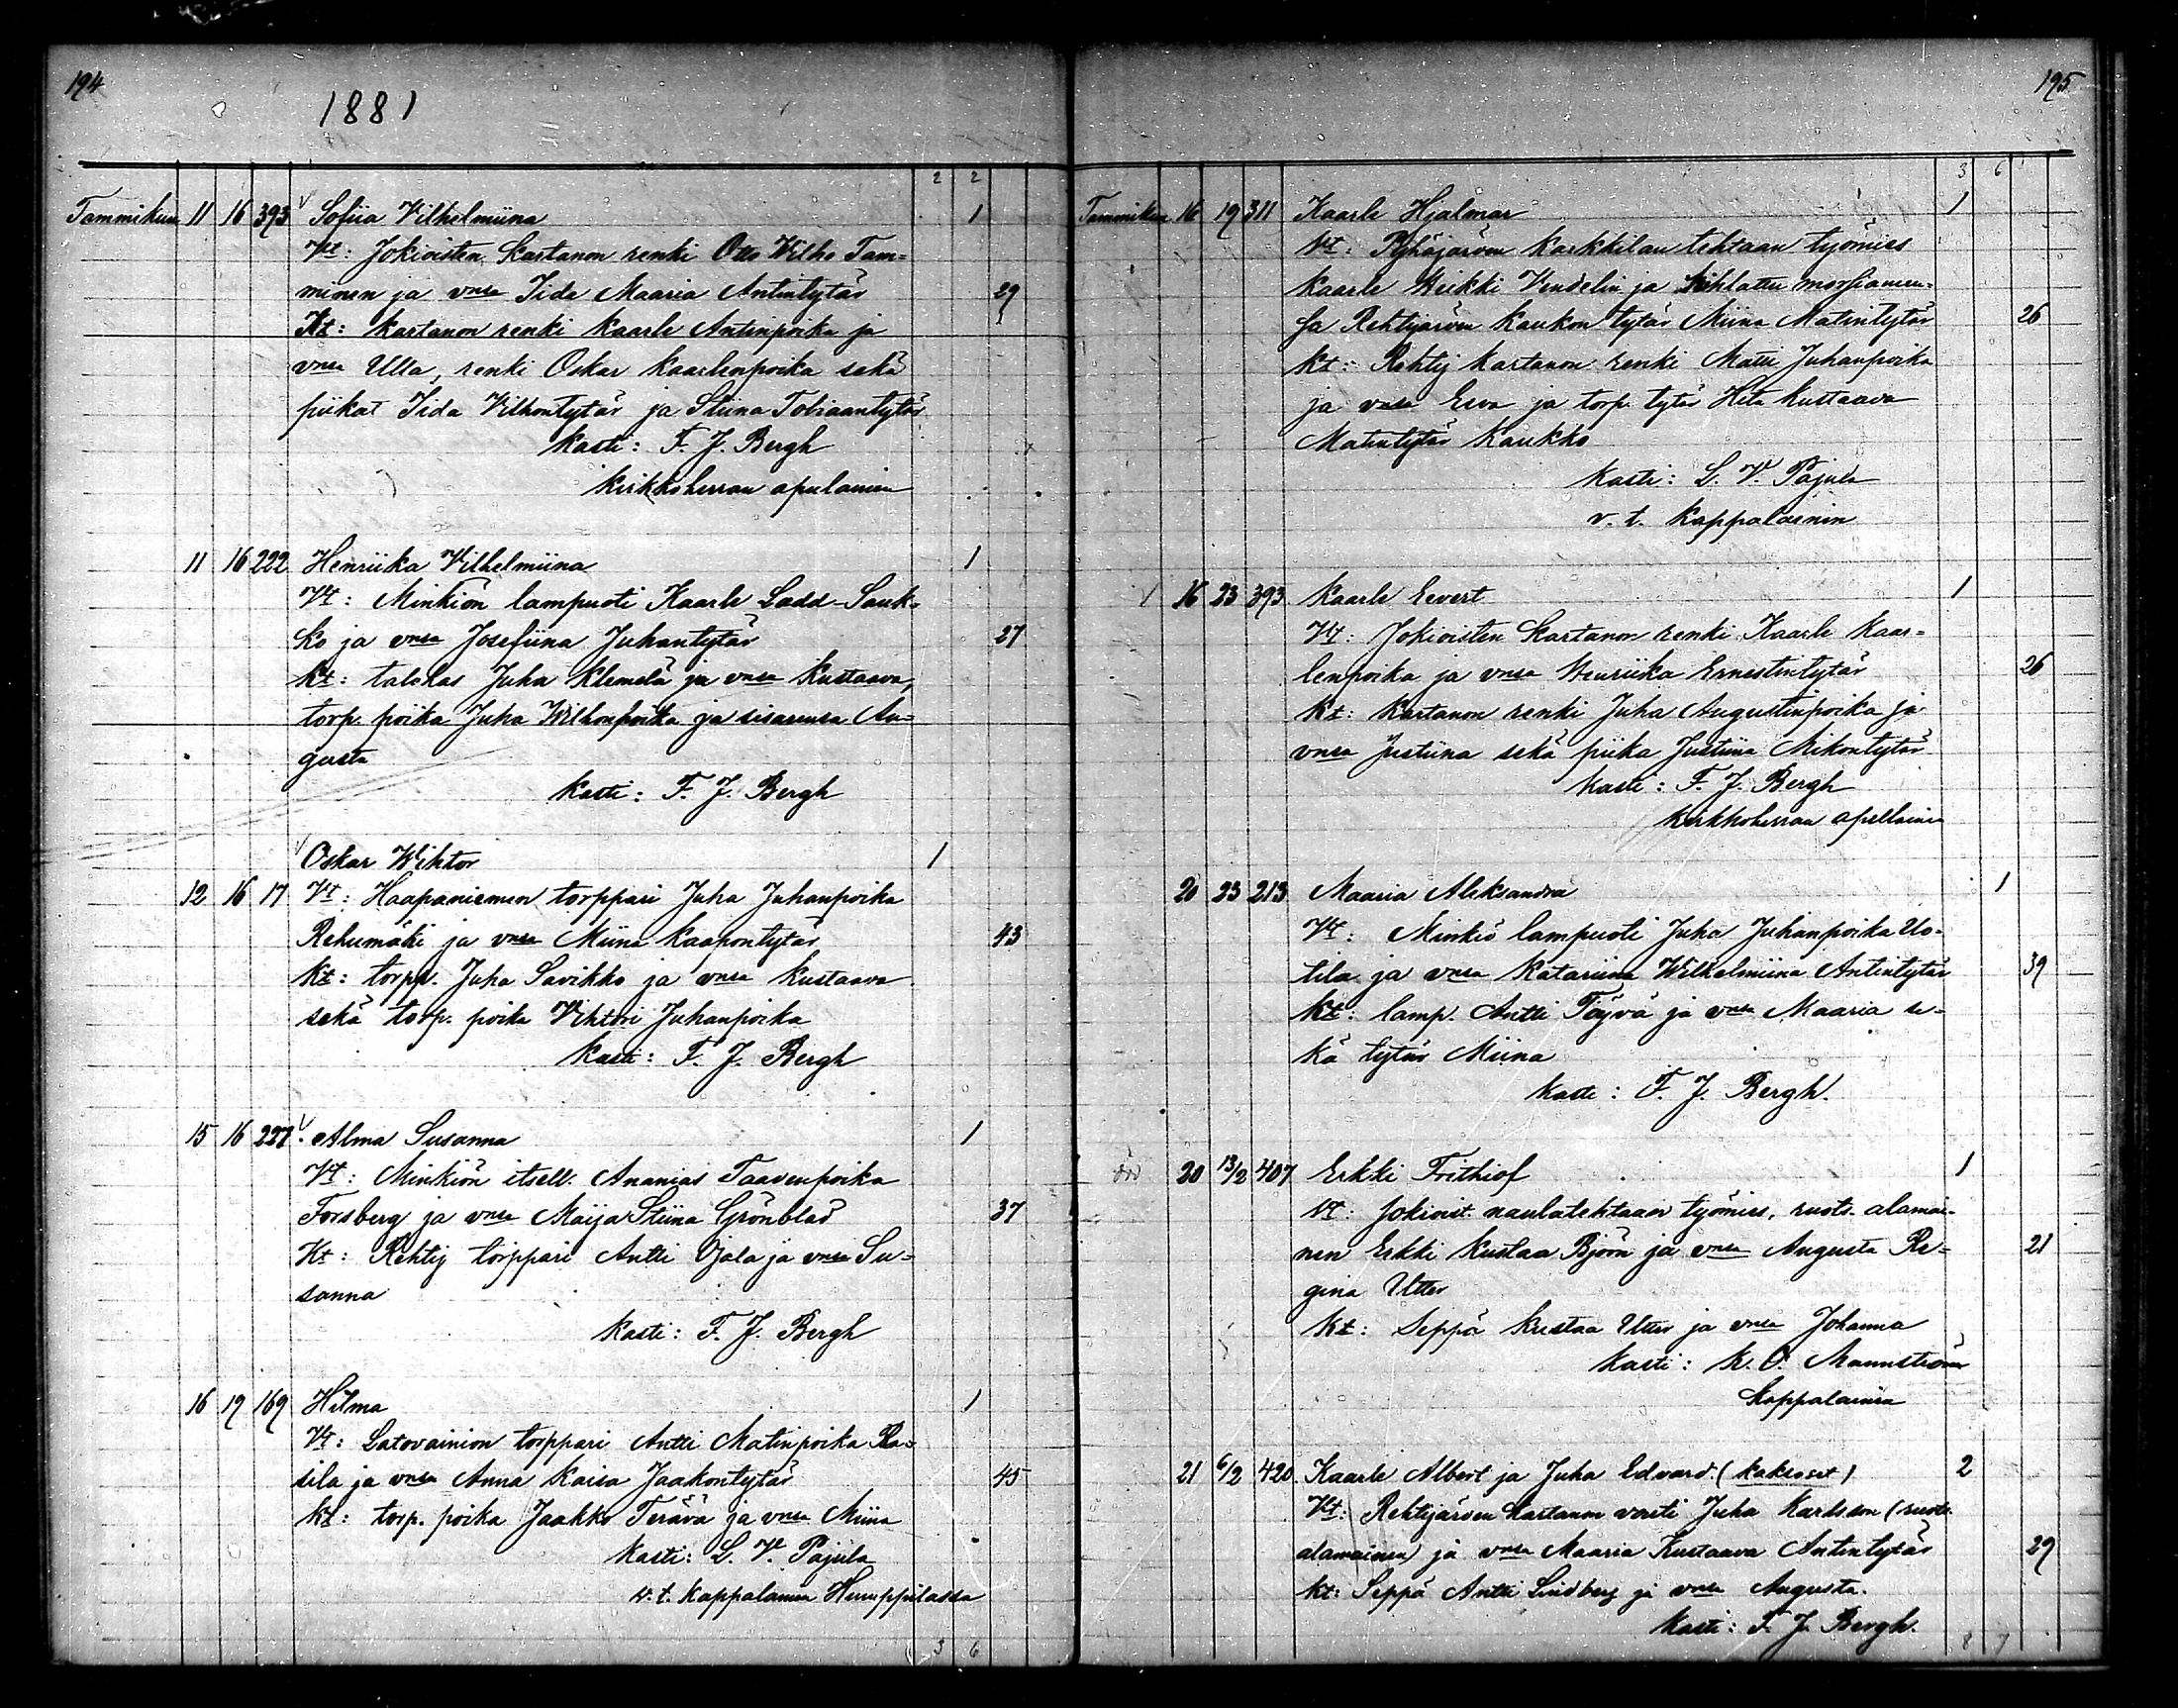 194
1881
2 2
Tammikuu 11 16 393 Sofiia Vilhelmiina 1
Vt: Jokioisten Kartanon renki Otto Wilho Tam-
minen ja vnsa Iida Maaria Antintytär 29
Kt: Kartanon renki Kaarle Antinpoika ja
vnsa Ulla, renki Oskar Kaarlenpoika sekä
piikat Iida Vilhontytär ja Stiina Tobiaantytär
Kasti: F. J. Bergh
Kirkkoherran apulainen
11 16 222 Henriika Vilhelmiina 1
Vt: Minkiön lampuoti Kaarle Ladd-Sauk-
ko ja vnsa Josefiina Juhantytär 27
Kt: talokas Juha Klemelä ja vnsa Kustaava,
torp. poika Juha Wilhonpoika ja sisarensa Au-
gusta
Kasti: F. J. Bergh
Oskar Wihtor 1
12 16 17 Vt: Haapaniemen torppari Juha Juhanpoika
Rehumäki ja vnsa Miina Kaapontytär 43
Kt: torpp. Juha Savikko ja vnsa Kustaava
sekä torp. poika Vihtori Juhanpoika
Kasti: F. J. Bergh
15 16 227 Alma Susanna 1
Vt: Minkiön itsell. Ananias Taavenpoika
Forsberg ja vnsa Maija Stiina Grönblad 37
Kt: Rehtij torppari Antti Ojala ja vnsa Su-
sanna
Kasti: F. J. Bergh
16 19 169 Hilma 1
Vt: Latovainion torppari Antti Matinpoika Ra-
sila ja vnsa Anna Kaisa Jaakontytär 45
Kt: torp. poika Jaakko Terävä ja vnsa Miina
Kasti: L. V. Pajula
v. t. Kappalainen Humppilassa
3 6
195
3 6
Tammikuu 16 19 311 Kaarle Hjalmar 1
Vt: Pyhäjärven Karkkilan tehtaan työmies
Kaarle Heikki Vendelin ja kihlattu morsiamen-
sa Rehtijärven Kaukon tytär Miina Matintytär 26
Kt: Rehtij Kartanon renki Matti Juhanpoika
ja vnsa Eeva ja torp. tytär Heta Kustaava
Matintytär Kaukko
Kasti: L. V. Pajula
v. t. Kappalainen
16 23 393 Kaarle Eevert 1
Vt: Jokioisten Kartanon renki Kaarle Kaar-
lenpoika ja vnsa Henriika Ernestintytär 26
Kt: Kartanon renki Juha Augustinpoika ja
vnsa Justiina sekä piika Justiina Mikontytär
Kasti: F. J. Bergh
Kirkkoherran apellainen
20 23 213 Maaria Aleksandra 1
Vt: Minkiö lampuoti Juha Juhanpoika Uo-
tila ja vnsa Katariina Wilhelmiina Antintytär 39
Kt: lamp. Antti Töyvä ja vnsa Maaria se-
kä tytär Miina
Kasti: F. J. Bergh.
20 13/2 407 Erkki Frithiof 1
Vt: Jokioist. naulatehtaan työmies, ruots. alamai-
nen Erkki Kustaa Björn ja vnsa Augusta Re- 21
gina Utter
Kt: Seppä Kustaa Utter ja vnsa Johanna
Kasti: K. O. Mannström
Kappalainen
21 6/2 420 Kaarle Albert ja Juha Edvard (kaksoset) 2
Vt: Rehtijärven Kartanon vouti Juha Karlsson (ruots.
alamainen) ja vnsa Maaria Kustaava Antintytär 29
Kt: Seppä Antti Lindberg ja vnsa Augusta.
Kasti: F. J. Bergh.
8 7